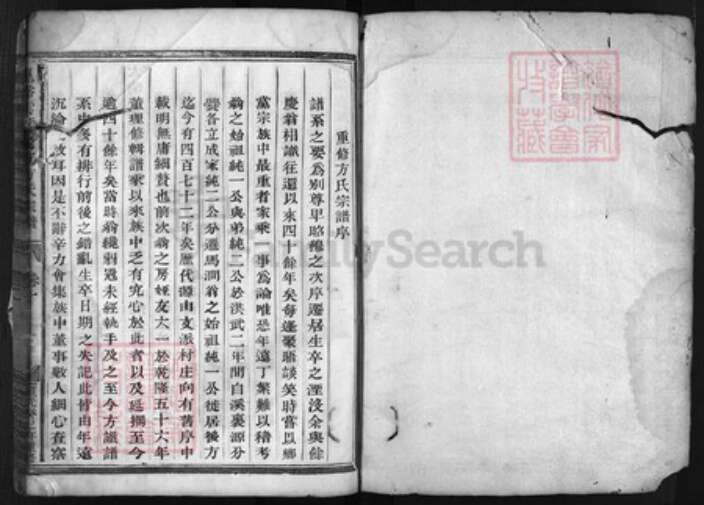 重修方氏宗譜序
譜系之要為別尊卑昭穆之次序遷居生卒之湮沒余與餘
慶翁相識往還以來四十餘年矣每逢聚晤談笑時嘗以鄉
黨宗族中最重者家乘一事為論唯恐年遠丁繁難以稽考
翁之始祖純一公與弟純二公於洪武二年間自溪裏源分
爨各立成家純二公分遷馬澗翁之始祖純一公徙居後方
迄今有四百七十二年矣歷代源由支派村庄向有舊序中
載明無庸細贅也前次翁之房姪友大一於乾隆五十六年
董理修輯譜乘以來族中乏有究心於此者以及延擱至今
逾四十餘年矣當時翁纔弱冠未經執手及之至今方議譜
系中多有排行前後之錯亂生卒日期之失記此皆由年遠
沉淪之故耳因是不辭辛力會集族中董事數人細心查察
FamilySearch